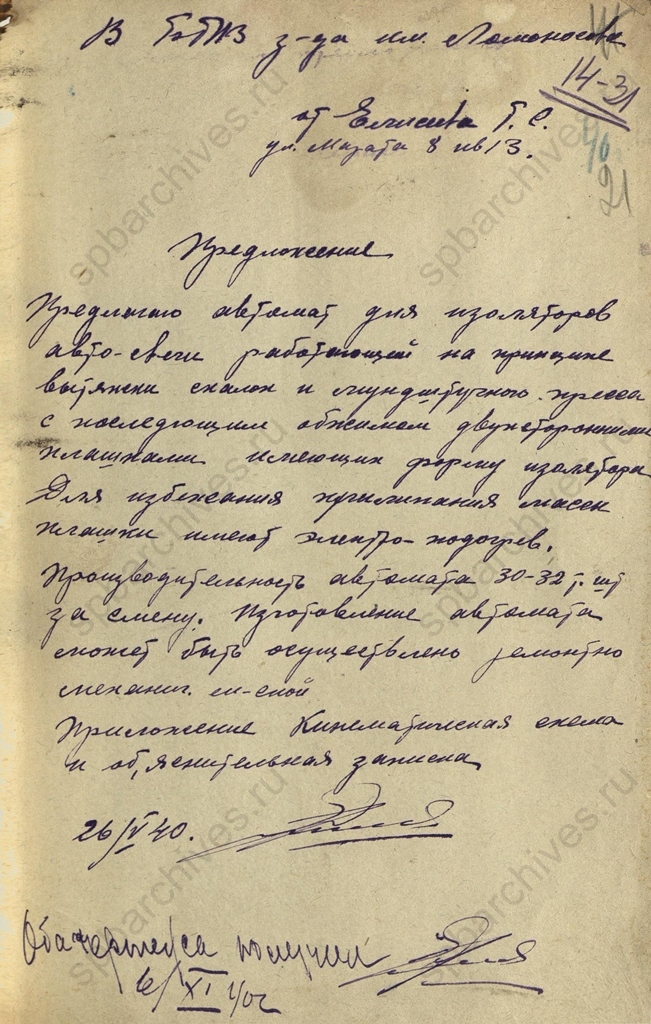 В БРИЗ з-да им. Ломоносова
14-31
от Елисеева Г. С.
ул. Марата 8 кв 13.
21
Предложение
Предлагаю автомат для изоляторов
авто-свечи работающий на принципе
вытяжки скалок и мундштучного пресса
с последующим обжимом двухсторонними
плашками имеющих форму изолятора
Для избежания прилипания массы
плашки имеют электро-подогрев.
Производительность автомата 30-32 т. шт
за смену. Изготовление автомата
может быть осуществлено ремонтно
механич. м-ской
Приложение Кинематическая схема
и объяснительная записка
26/V 40.
Оба чертежа получил
6/XI 40г
spbarchives.ru